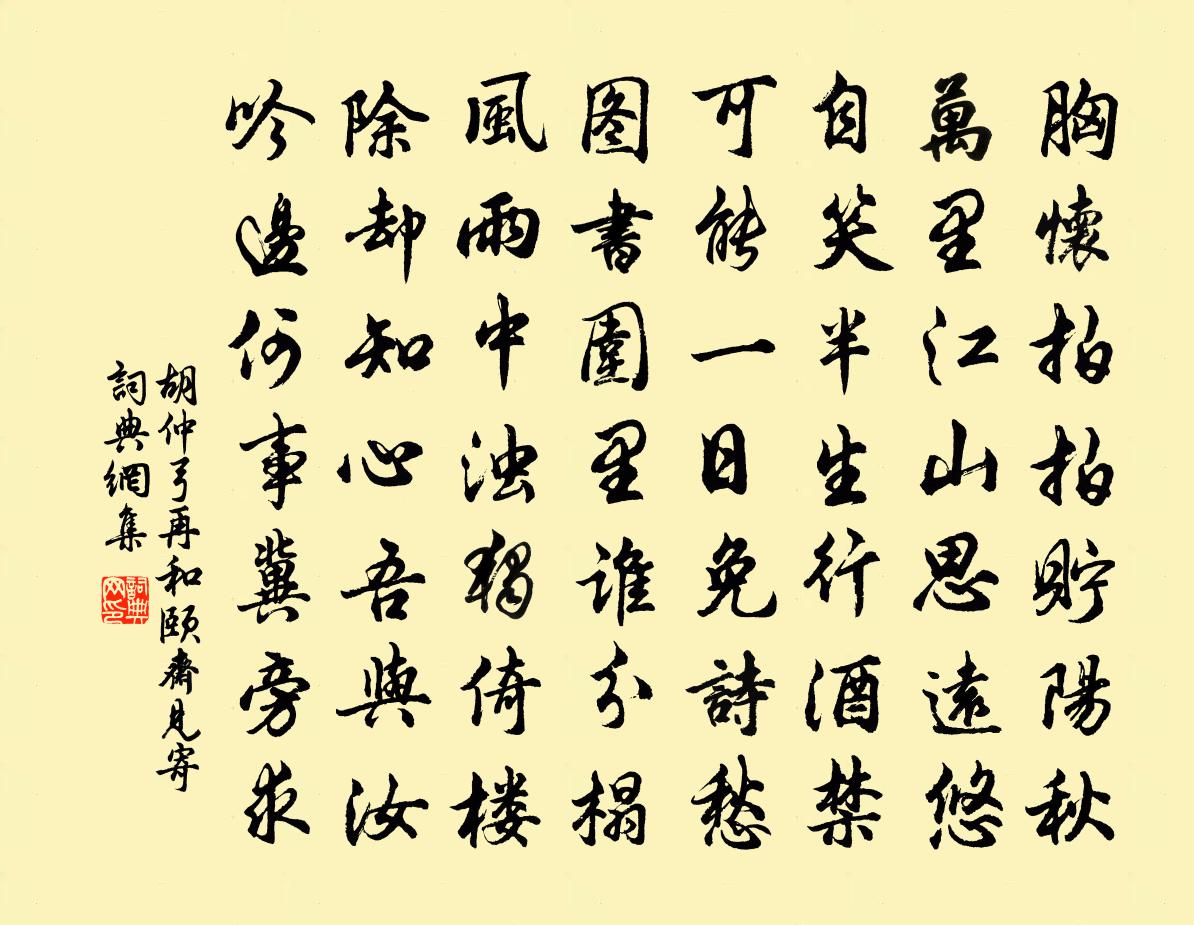 胸懷拍拍貯陽秋
萬里江山思遠悠
自笑半生行酒禁
可能一日免詩愁
图書圍里誰分榻
風雨中浊獨倚楼
除却知心吾與汝
吟邊何事冀旁求
胡仲弓再和颐齋見寄
詞典網集
詞典网印